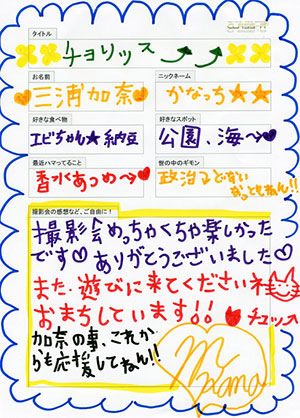 タイトル
チョリッス
お名前
ニックネーム
三浦加奈
かなっち★★
好きな食べ物
好きなスポット
エビちゃん★納豆
公園、海〜→
最近ハマってること
世の中のギモン
香水あつめ〜→
政治ってどない
なっとんねん!!
撮影会の感想など、ご自由に!
撮影会めっちゃくちゃ楽しかった
です♡ありがとうございました♡
また、遊びに来てくださいネ
おまちしています!! チュッ
加奈の事、これか
らも応援してねん!!